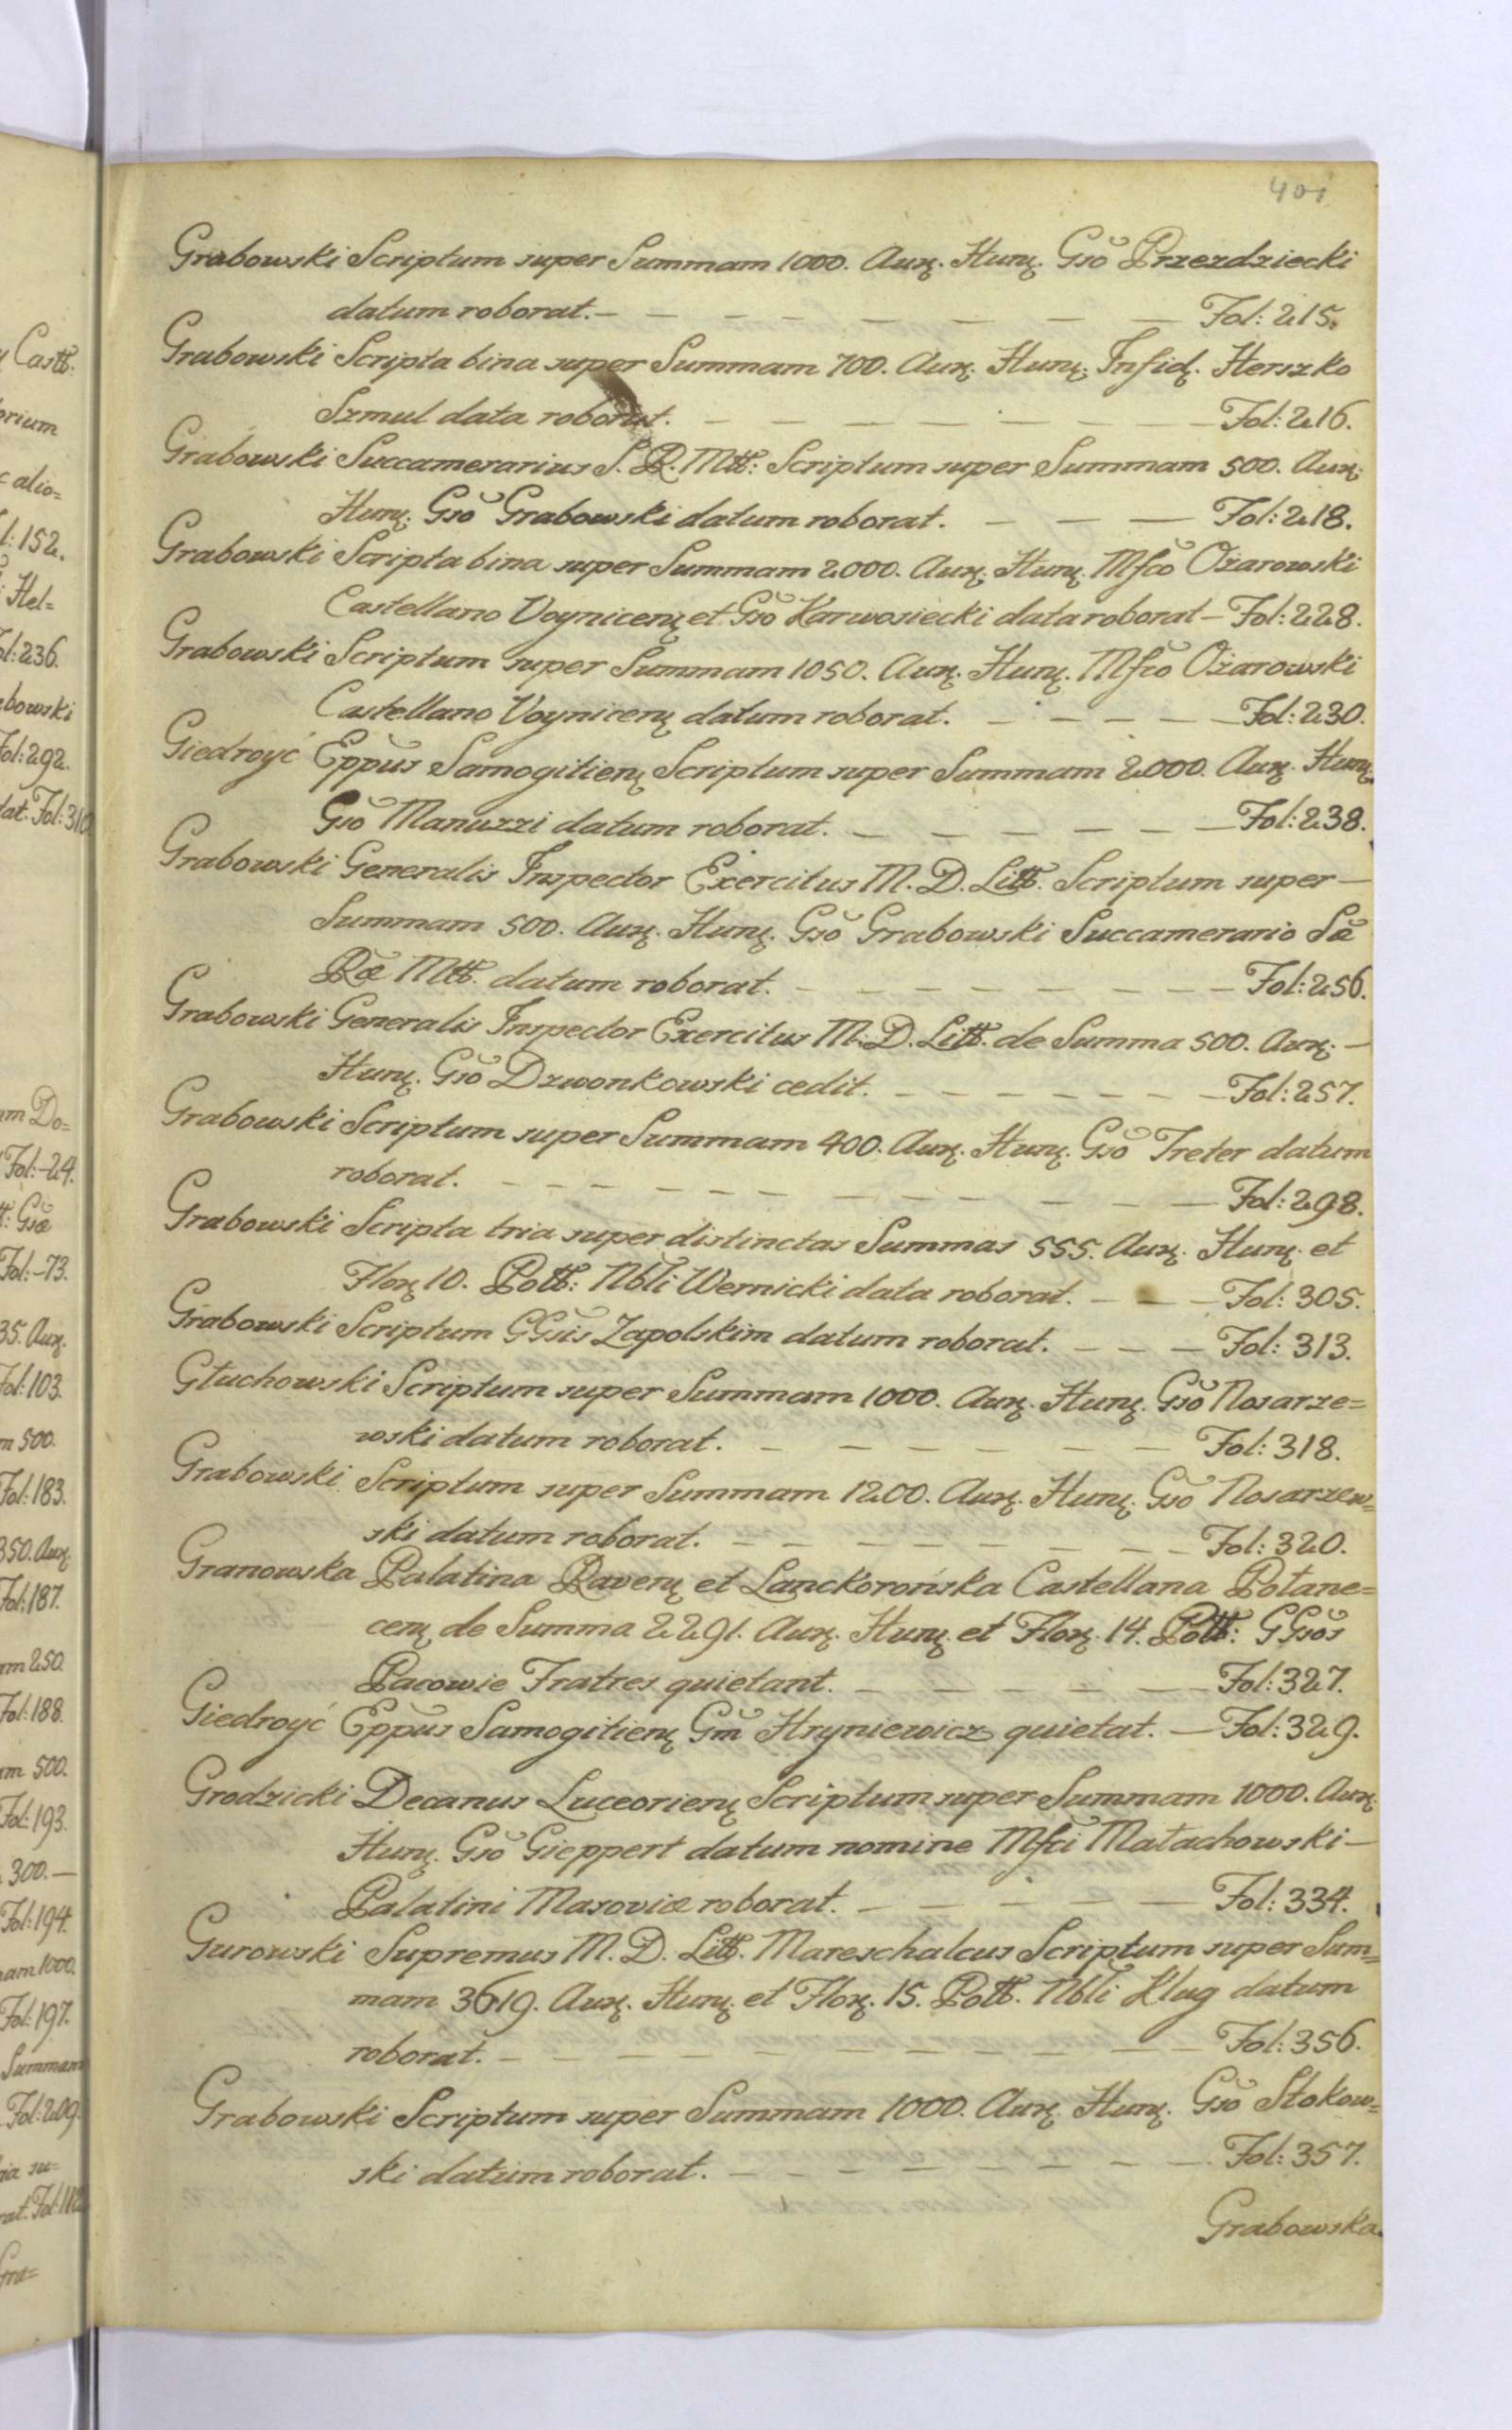 401
Grabowski Scriptum super Summam 1000. Aurę. Hunę. Gső Przezdziecki
datum roborat. — — — — — — — Fol: 215.
Grabowski Scripta bina super Summam 700. Aurę. Hunę. Infidę. Herszko
Szmul data roborat. — — — — — — Fol: 216.
Grabowski Succamerarius S. R. Mtt: Scriptum super Summam 500. Aurę.
Hunę. Gsŏ Grabowski datum roborat. — — — Fol: 218.
Grabowski Scripta bina super Summam 2000. Aurę. Hunę. Mfcŏ Ożarowski
Castellano Voynicenę et Gsŏ Karwosiecki data roborat — Fol: 228.
Grabowski Scriptum super Summam 1050. Aurę. Hunę. Mfcŏ Ożarowski
Castellano Voynicenę datum roborat. — — — — Fol: 230.
Giedroyć Eppŭs Samogitienę Scriptum super Summam 2000. Aurę. Hunę.
Gsŏ Manuzzi datum roborat. — — — — — Fol: 238.
Grabowski Generalis Inspector Exercitus M. D. Litt. Scriptum super —
Summam 500. Aurę. Hunę. Gsŏ Grabowski Succamerario Sæ̆
Ræ Mtt. datum roborat. — — — — — — Fol: 256.
Grabowski Generalis Inspector Exercitus M. D. Litt. de Summa 500. Aurę. —
Hunę. Gsŏ Dzwonkowski cedit. — — — — — — Fol: 257.
Grabowski Scriptum super Summam 400. Aurę. Hunę. Gsŏ Treter datum
roborat. — — — — — — — — — Fol: 298.
Grabowski Scripta tria super distinctas Summas 555. Aurę. Hunę. et
Florę 10. Pott: Nblĭ Wernicki data roborat. — — — Fol: 305.
Grabowski Scriptum GGsĭs Zapolskim datum roborat. — — — Fol: 313.
Głuchowski Scriptum super Summam 1000. Aurę. Hunę. Gsŏ Nosarze=
wski datum roborat. — — — — — — Fol: 318.
Grabowski Scriptum super Summam 1200. Aurę. Hunę. Gsŏ Nosarzew=
ski datum roborat. — — — — — — Fol: 320.
Granowska Palatina Ravenę et Lanckorońska Castellana Połane=
cenę de Summa 2291. Aurę. Hunę. et Florę. 14. Pott: GGsŏs
Pacowie Fratres quietant. — — — — — Fol: 327.
Giedroyć Eppŭs Samogitienę Gm̆ Hryniewicz quietat. — Fol: 329.
Grodzicki Decanus Luceorienę Scriptum super Summam 1000. Aurę.
Hunę. Gsŏ Gieppert datum nomine Mfcĭ Małachowski —
Palatini Masoviæ roborat. — — — — — Fol: 334.
Gurowski Supremus M. D. Litt. Mareschalcus Scriptum super Sum=
mam 3619. Aurę. Hunę. et Florę. 15. Pott. Nblĭ Klug datum
roborat. — — — — — — — — Fol: 356.
Grabowski Scriptum super Summam 1000. Aurę. Hunę. Gsŏ Stokow=
ski datum roborat. — — — — — — Fol: 357.
Grabowska.